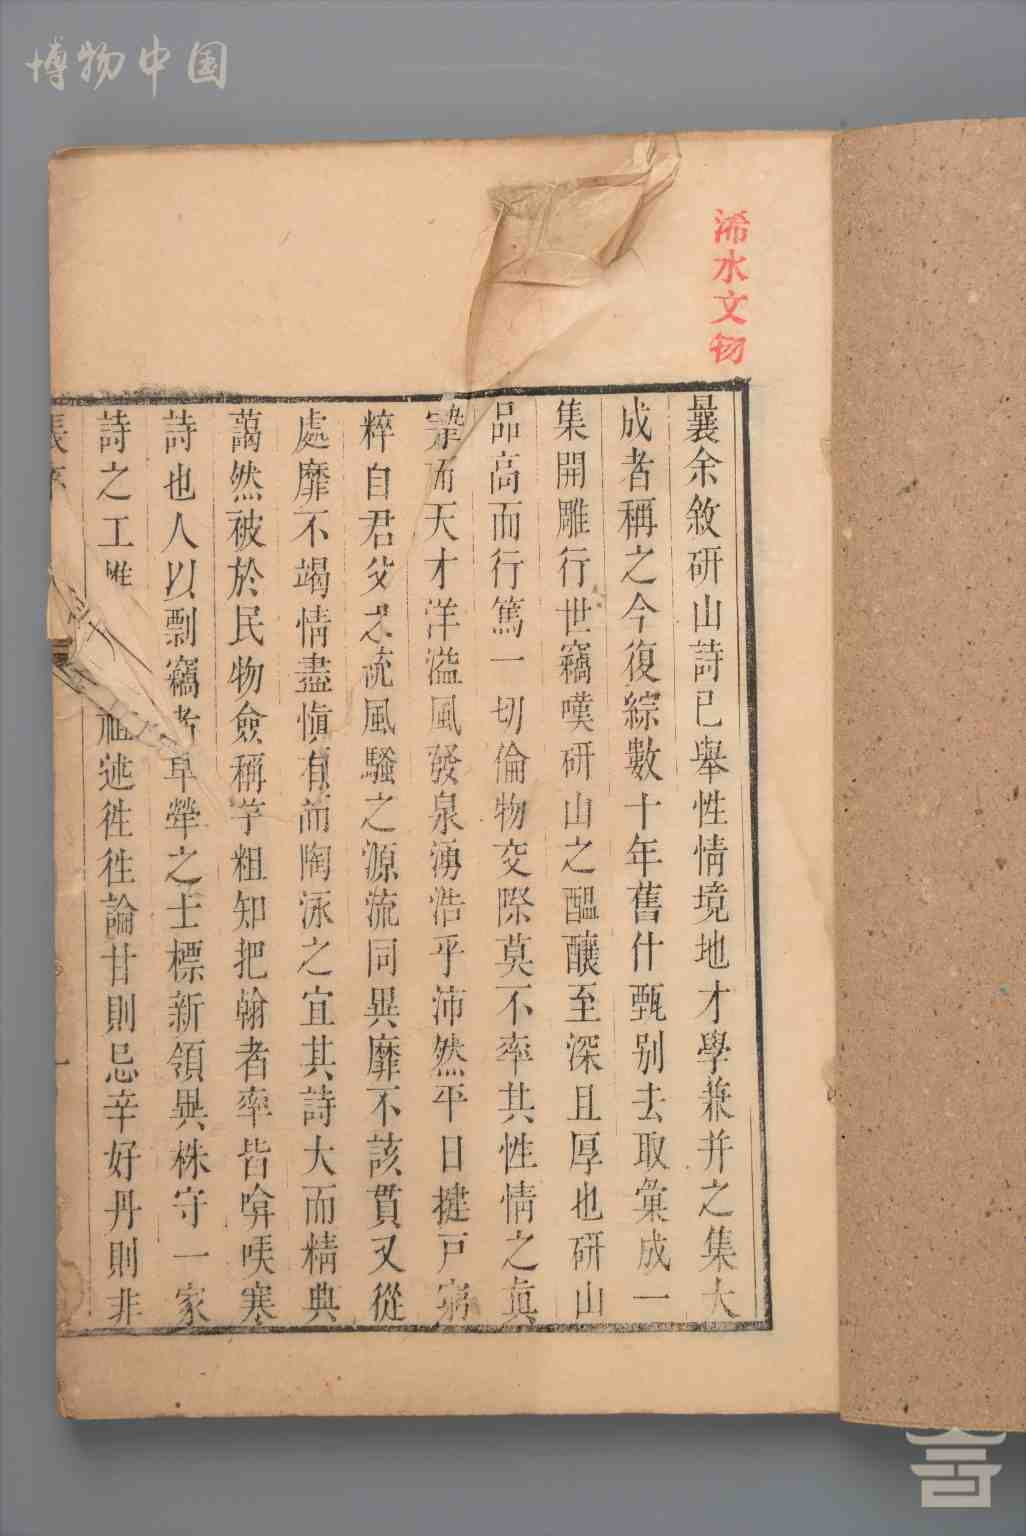 博物中国
浠水文物
曩余敘研山詩已舉性情境地才學兼并之集大
成者稱之今復綜數十年舊什甄别去取彙成一
集開雕行世竊嘆研山之醞釀至深且厚也研山
品高而行篤一切倫物交際莫不率其性情之真
摯而天才洋溢風發泉湧浩乎沛然平日揵戸窮
粹自君父之疏風騷之源流同異靡不該貫又從
處靡不竭情盡慎有而陶泳之宜其詩大而精典
藹然被於民物僉稱竽粗知把翰者率皆啽㗨寒
詩也人以剽竊者卑犖之士標新領異株守一家
詩之工 祖述徃徃論甘則忌辛好丹則非